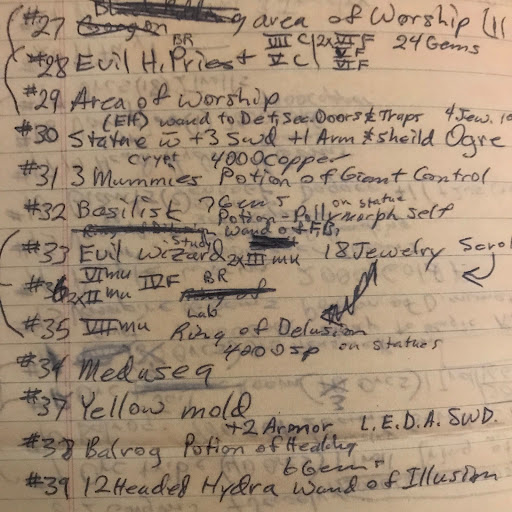 #27 g area of Worship (11
BR VIII C 2xVI F 24 Gems
#28 Evil H. Priest V C VI F
#29 Area of worship
(EH) wand to Det, Sec. Doors & Traps 4 Jew.
#30 Statue w +3 Swd +1 Arm & sheild Ogre
Crypt 4000 Copper
#31 3 Mummies Potion of Giant Control
#32 Basilisk 7 Gems on statue
Potion - Pollymorph self
wand of FB,
#33 Evil wizard Study 2xIII mu 18 Jewelry Scrol
VI mu IV F BR
2xII mu
Lab
#35 VII mu Ring of Delusion
4000sp on statues
#36 Medusea
#37 Yellow mold
+2 Armor L.E.D.A. SWD.
#38 Balrog Potion of Healing
6 Gems
#39 12 Headed Hydra Wand of Illusion